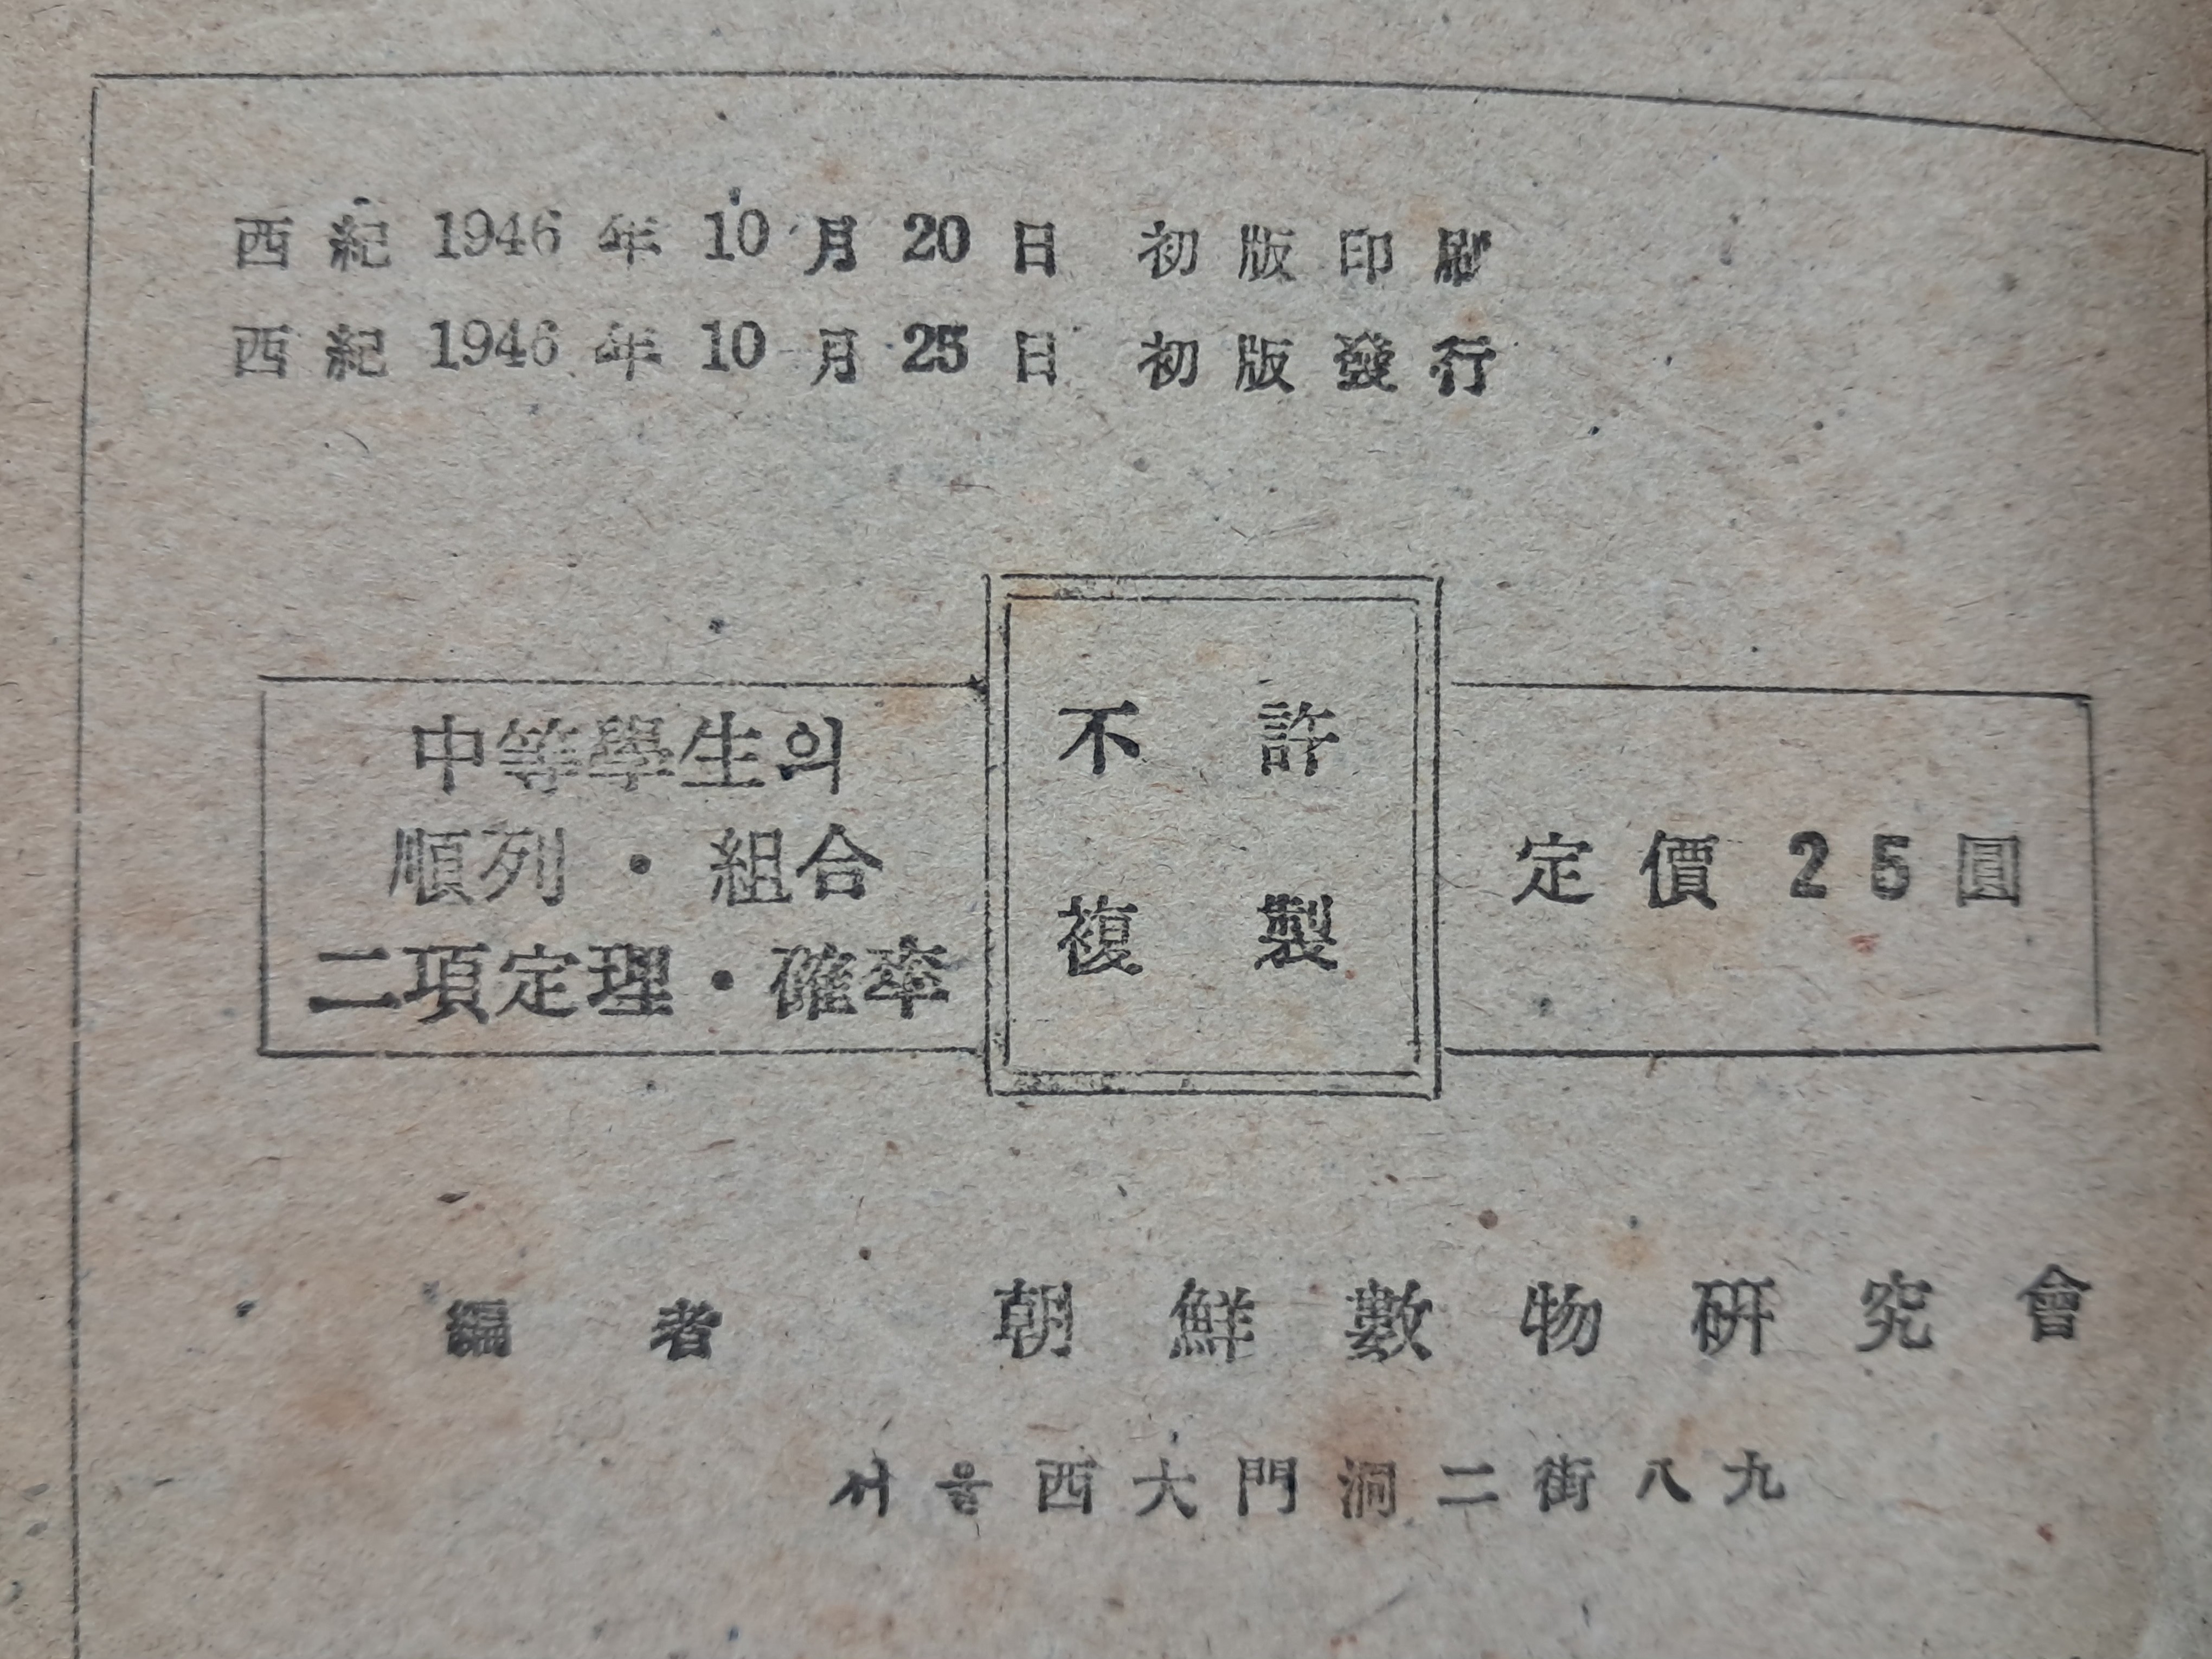 西紀1946年10月20日 初版印刷
西紀1946年10月25日 初版發行
中等學生의
順列・組合
二項定理・確率
不許
複製
定價25圓
編者 朝鮮數物硏究會
서울西大門洞二街八九